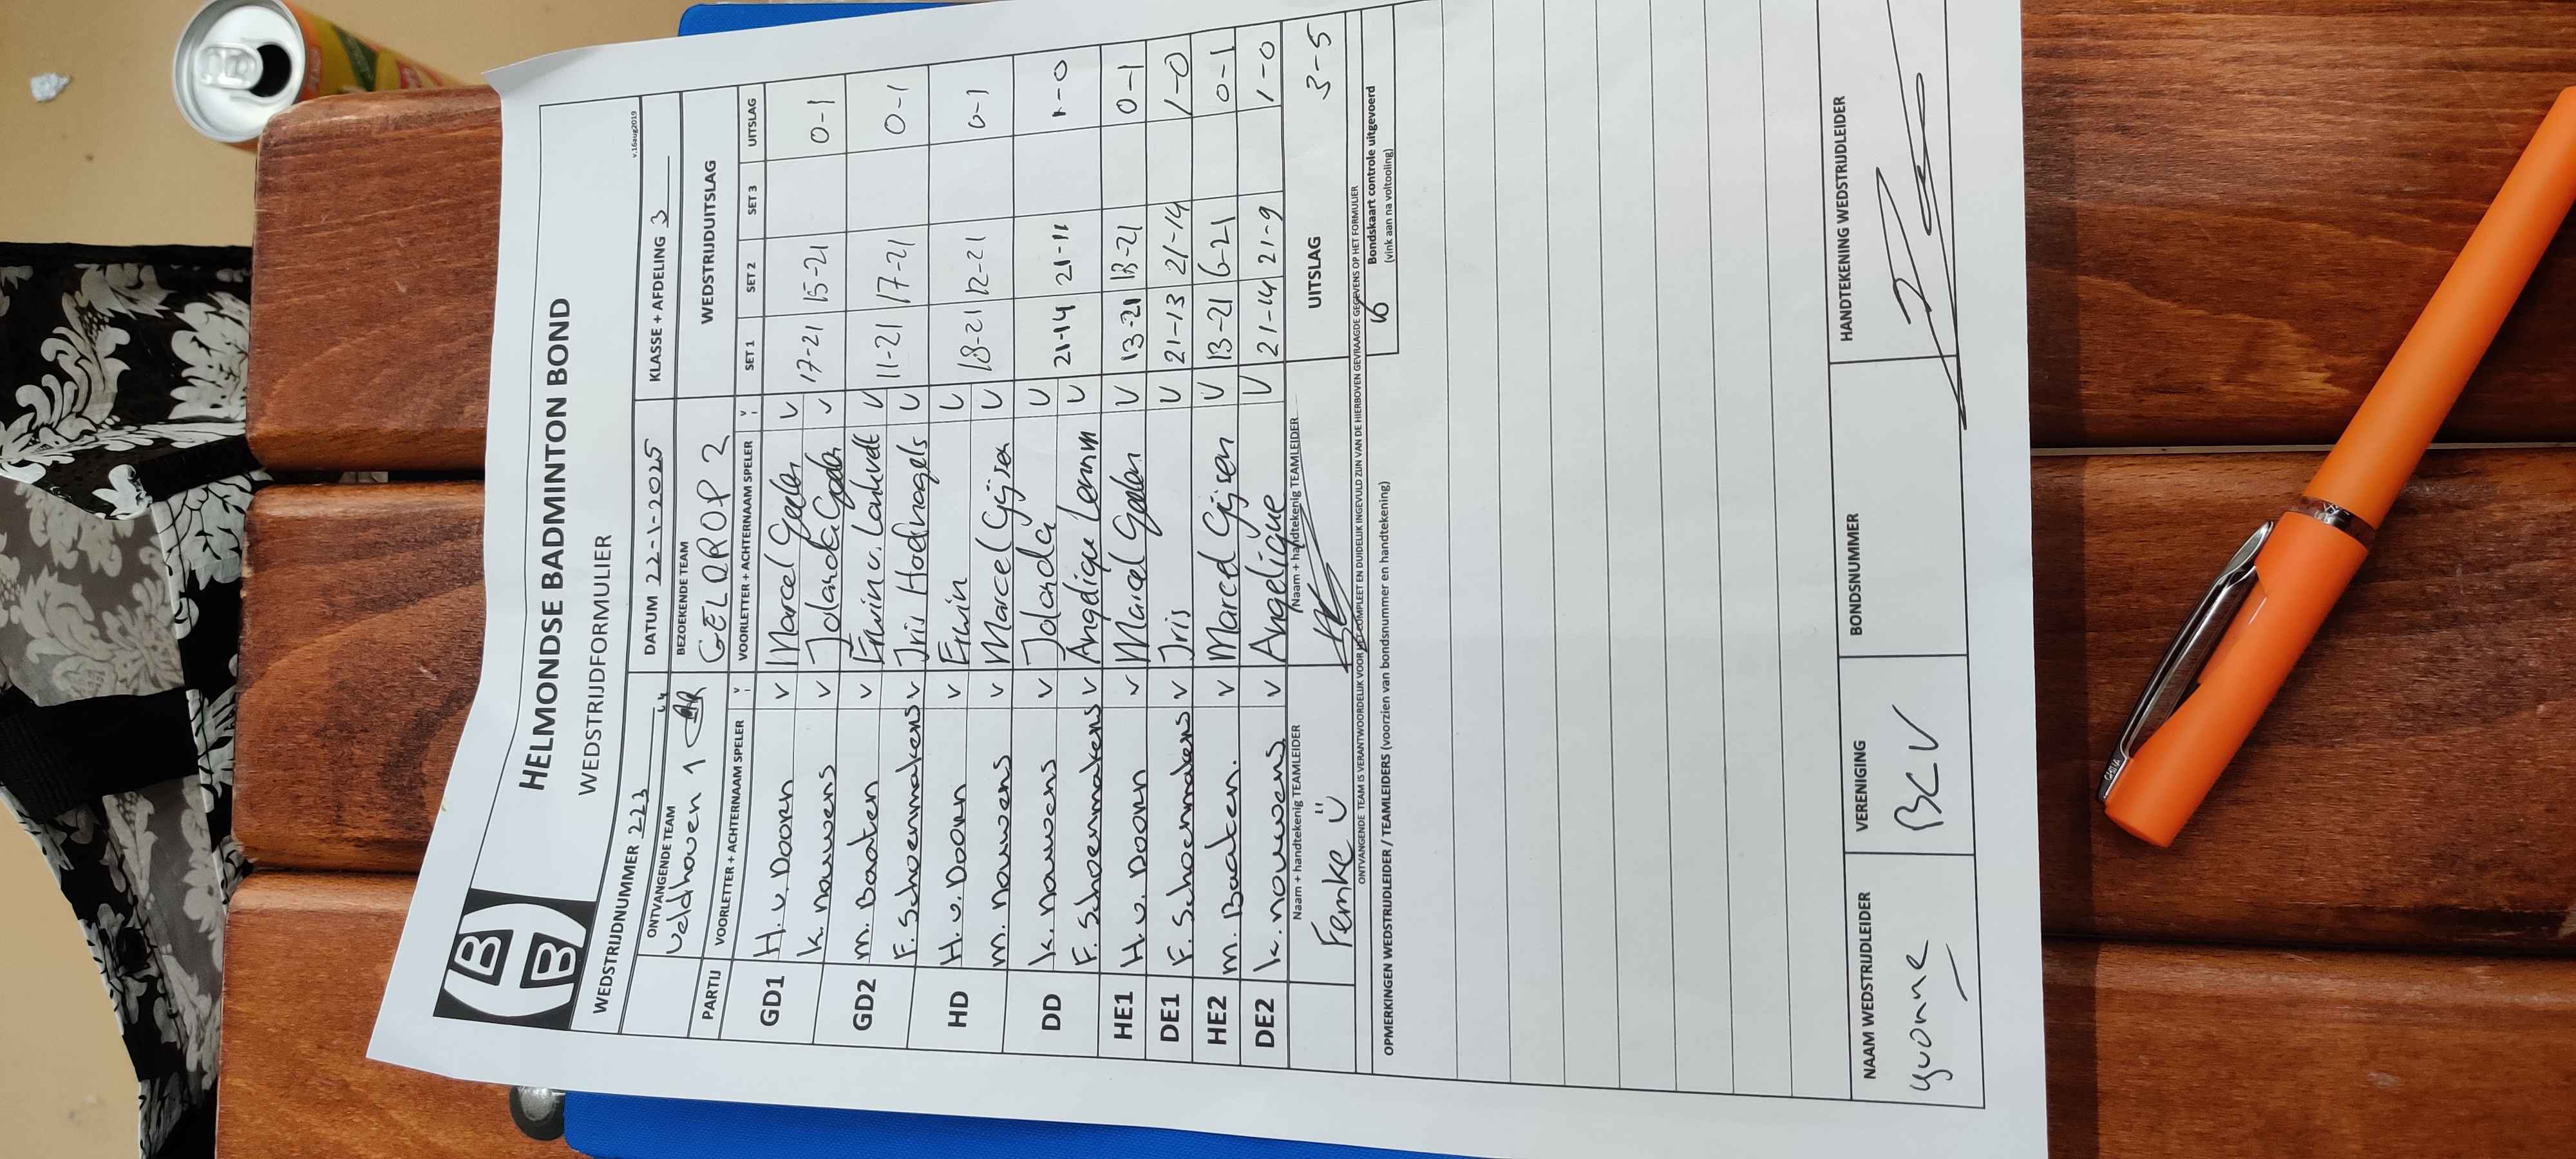 HBB
HELMONDSE BADMINTON BOND
WEDSTRIJDFORMULIER
v.16aug2019
WEDSTRIJDNUMMER 223 DATUM 22-1-2025 KLASSE + AFDELING 3
ONTVANGENDE TEAM BEZOEKENDE TEAM WEDSTRIJDUITSLAG
Veldhoven 1 GELDROP 2
PARTIJ VOORLETTER + ACHTERNAAM SPELER V VOORLETTER + ACHTERNAAM SPELER V SET 1 SET 2 SET 3 UITSLAG
GD1 H. v. Doorn v Marcel v
K. nouwens v Jolanda v 17-21 15-21 0-1
GD2 m. Baaten v Erwin v. v
F. Schoenmakers v Iris Hoefnagels v 11-21 17-21 0-1
HD H. v. Doorn v Erwin v
m. nouwens v Marcel Gijsen v 18-21 12-21 0-1
DD K. nouwens v Jolanda v
F. Schoenmakers v Angelique v 21-14 21-11 1-0
HE1 H. v. Doorn v Marcel v 13-21 18-21 0-1
DE1 F. Schoenmakers v Iris v 21-13 21-14 1-0
HE2 m. Baaten. v Marcel Gijsen v 13-21 6-21 0-1
DE2 K. nouwens v Angelique v 21-14 21-9 1-0
Naam + handtekenig TEAMLEIDER Naam + handtekenig TEAMLEIDER UITSLAG 3-5
Femke
ONTVANGENDE TEAM IS VERANTWOORDELIJK VOOR HET COMPLEET EN DUIDELIJK INGEVULD ZIJN VAN DE HIERBOVEN GEVRAAGDE GEGEVENS OP HET FORMULIER
OPMERKINGEN WEDSTRIJDLEIDER / TEAMLEIDERS (voorzien van bondsnummer en handtekening)
Bondskaart controle uitgevoerd
(vink aan na voltooiing)
NAAM WEDSTRIJDLEIDER VERENIGING BONDSNUMMER HANDTEKENING WEDSTRIJDLEIDER
yvonne BCV